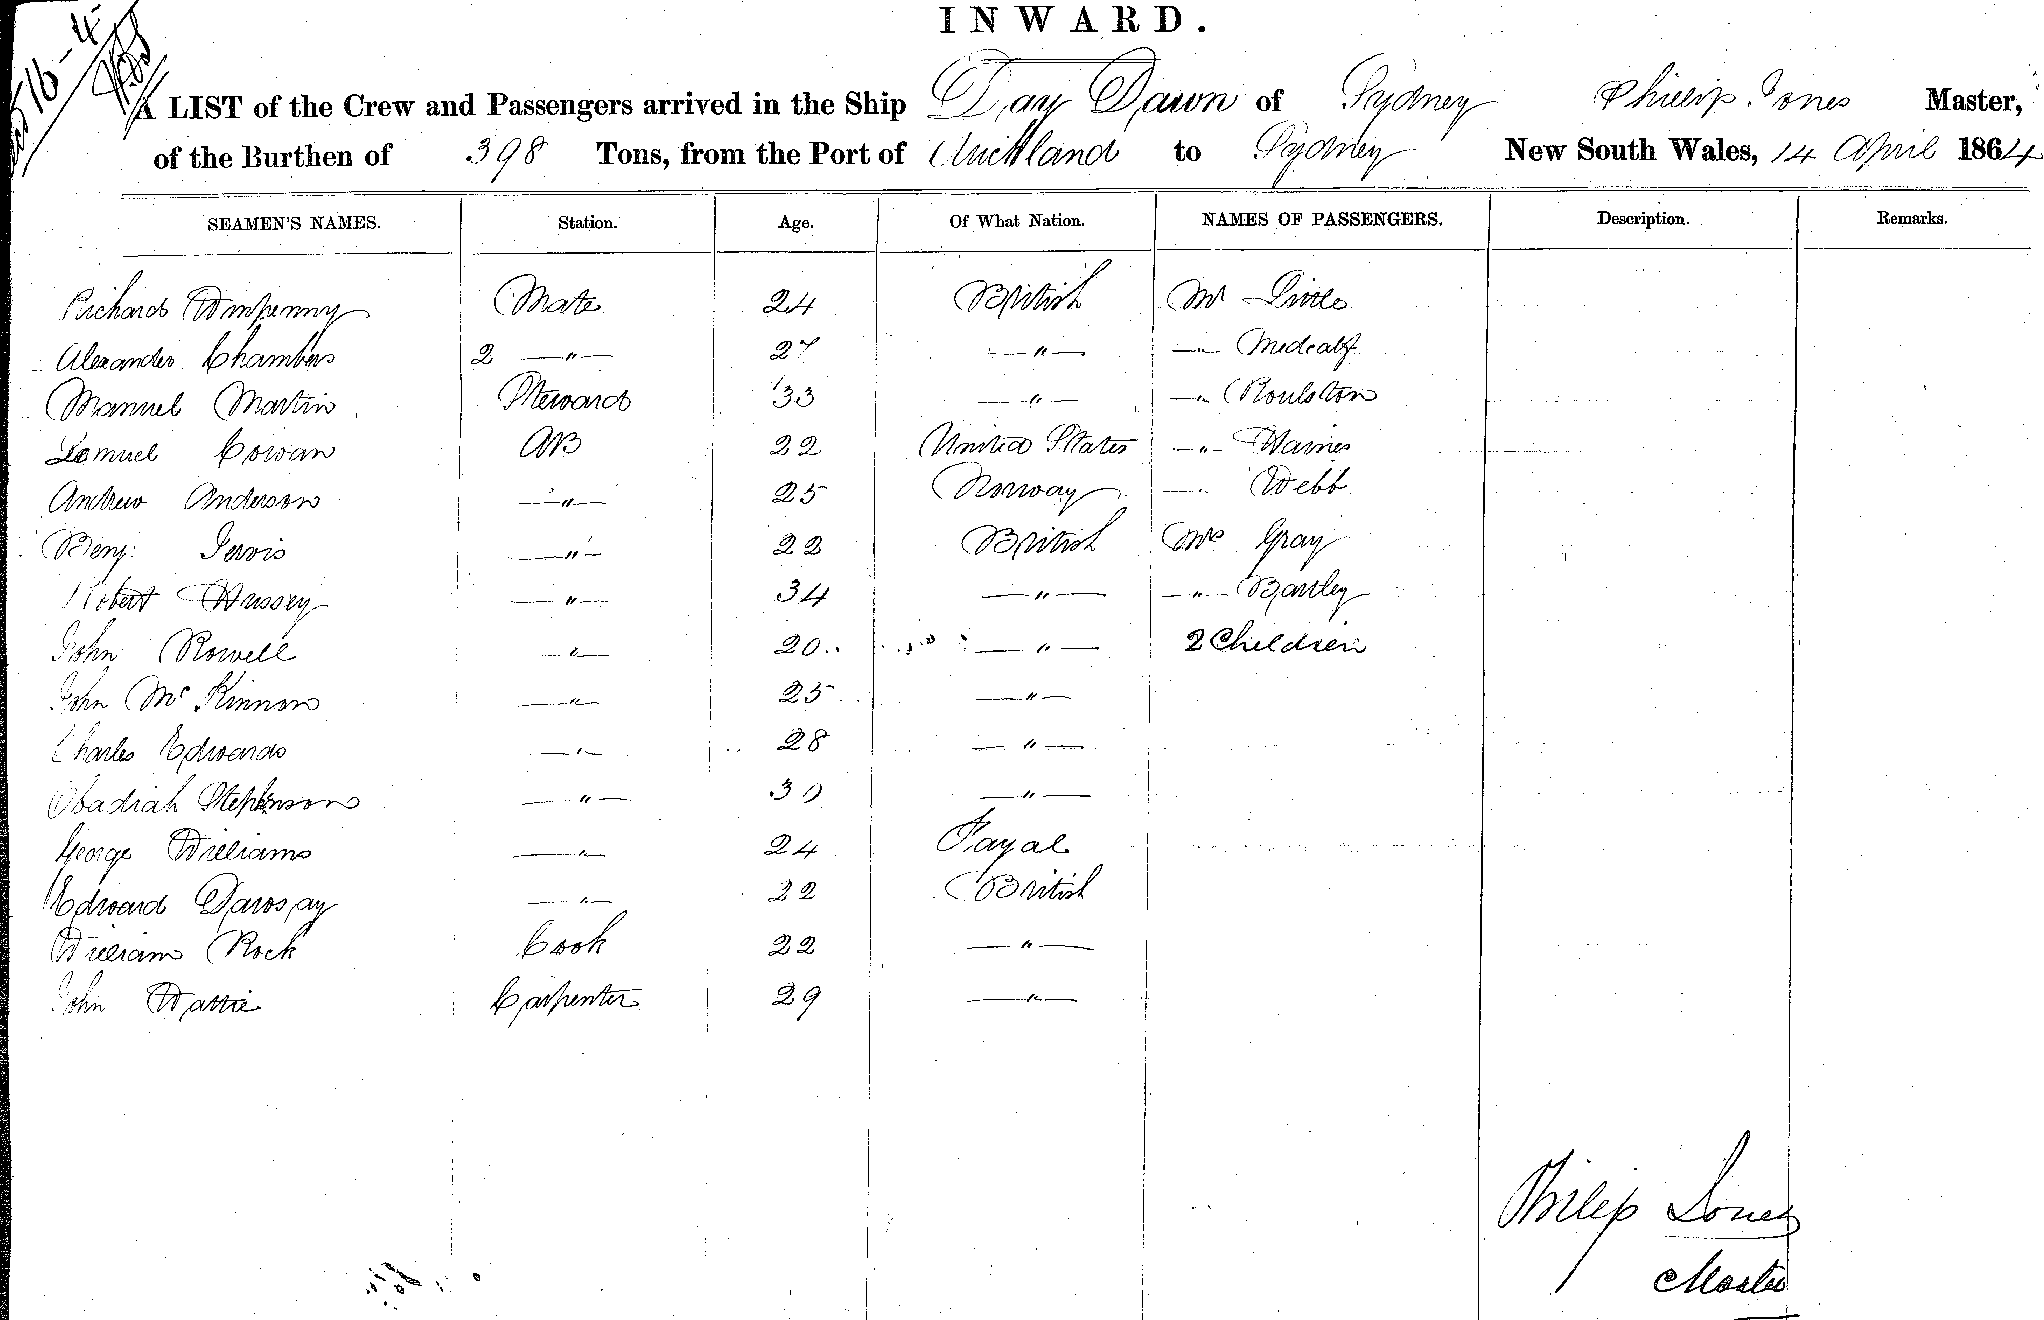 INWARD.
A LIST of the Crew and Passengers arrived in the Ship Day Dawn of Sydney Phillip Jones Master,
of the Burthen of 398 Tons, from the Port of Auckland to Sydney New South Wales, 14 April 1864
SEAMEN'S NAMES. Station. Age. Of What Nation. NAMES OF PASSENGERS. Description. Remarks.
Richard Winpenny Mate 24 British Mr Little
Alexander Chambers 2 —"— 27 —"— —"— Medcalf
Manuel Martin Steward 33 —"— —"— Roulston
Lemuel Cowan AB 22 United States —"— Haines
Andrew Anderson —"— 25 Norway —"— Webb
Benj: Jervis —"— 22 British Mrs Gray
Robert Hussey —"— 34 —"— —"— Bartley
John Rowell —"— 20 —"— 2 Children
John McKinnon —"— 25 —"—
Charles Edwards —"— 28 —"—
Obadiah Stephenson —"— 30 —"—
George Williams —"— 24 Fayal
Edward —"— 22 British
William Rock Cook 22 —"—
John Wattie Carpenter 29 —"—
Philip Jones
Master